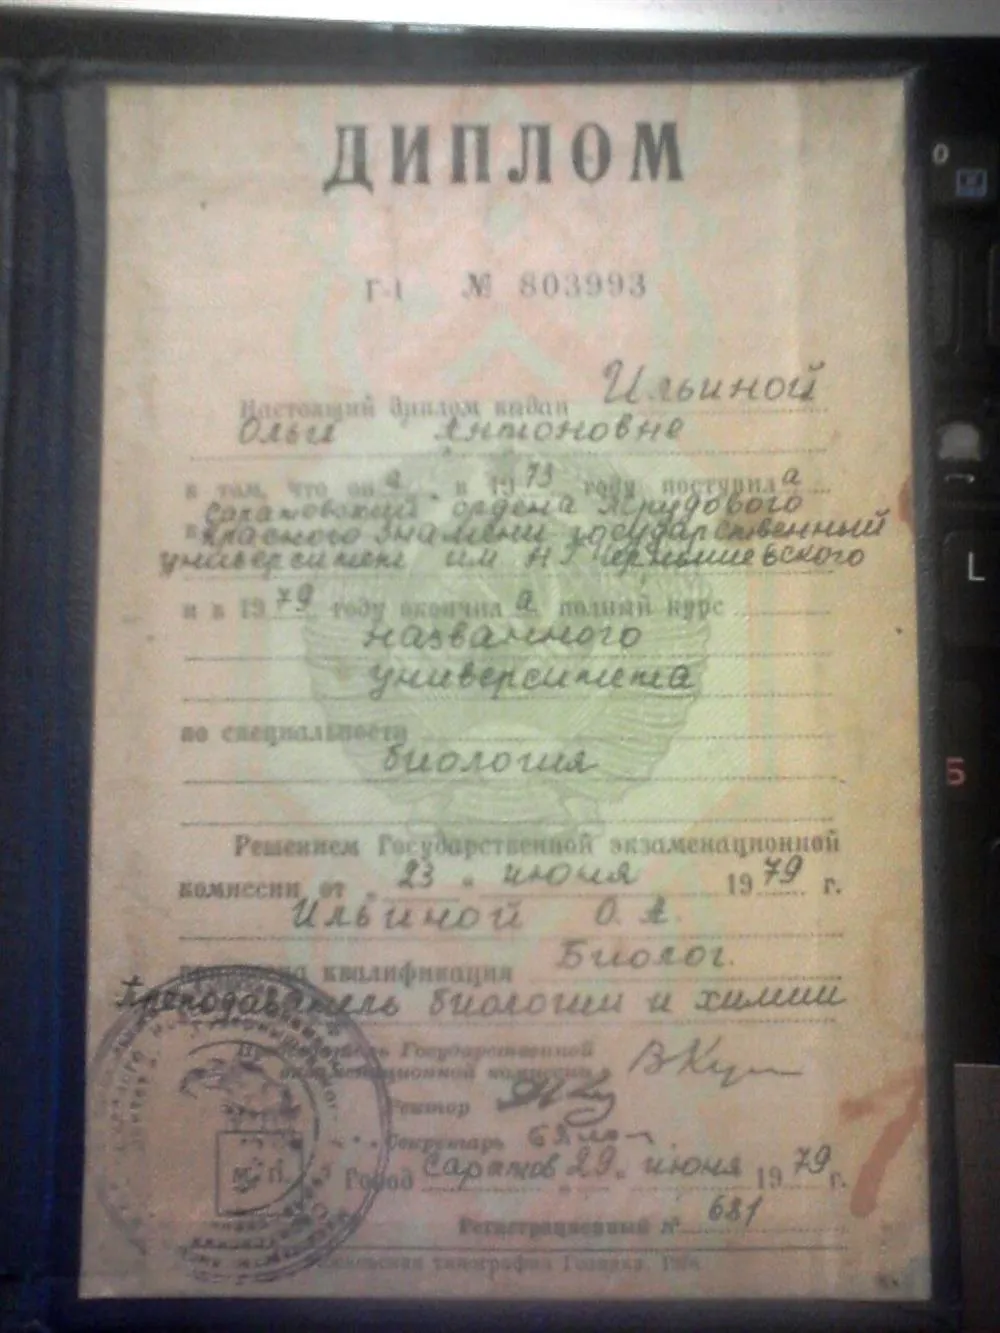 ДИПЛОМ
Г-I № 803993
Настоящий диплом выдан Ильиной
Ольге Антоновне
в том, что он а в 1973 году поступил а
в Саратовский ордена Трудового
Красного Знамени государственный
университет им Н Г Чернышевского
и в 1979 году окончил а полный курс
названного
университета
по специальности
биология
Решением Государственной экзаменационной
комиссии от „23“ июня 1979 г.
Ильиной О. А.
присвоена квалификация Биолог.
Преподаватель биологии и химии
Председатель Государственной
экзаменационной комиссии
Ректор
Секретарь
Город Саратов 29 июня 1979 г.
Регистрационный № 681
М. П.
Московская типография Гознака.
0
L
5